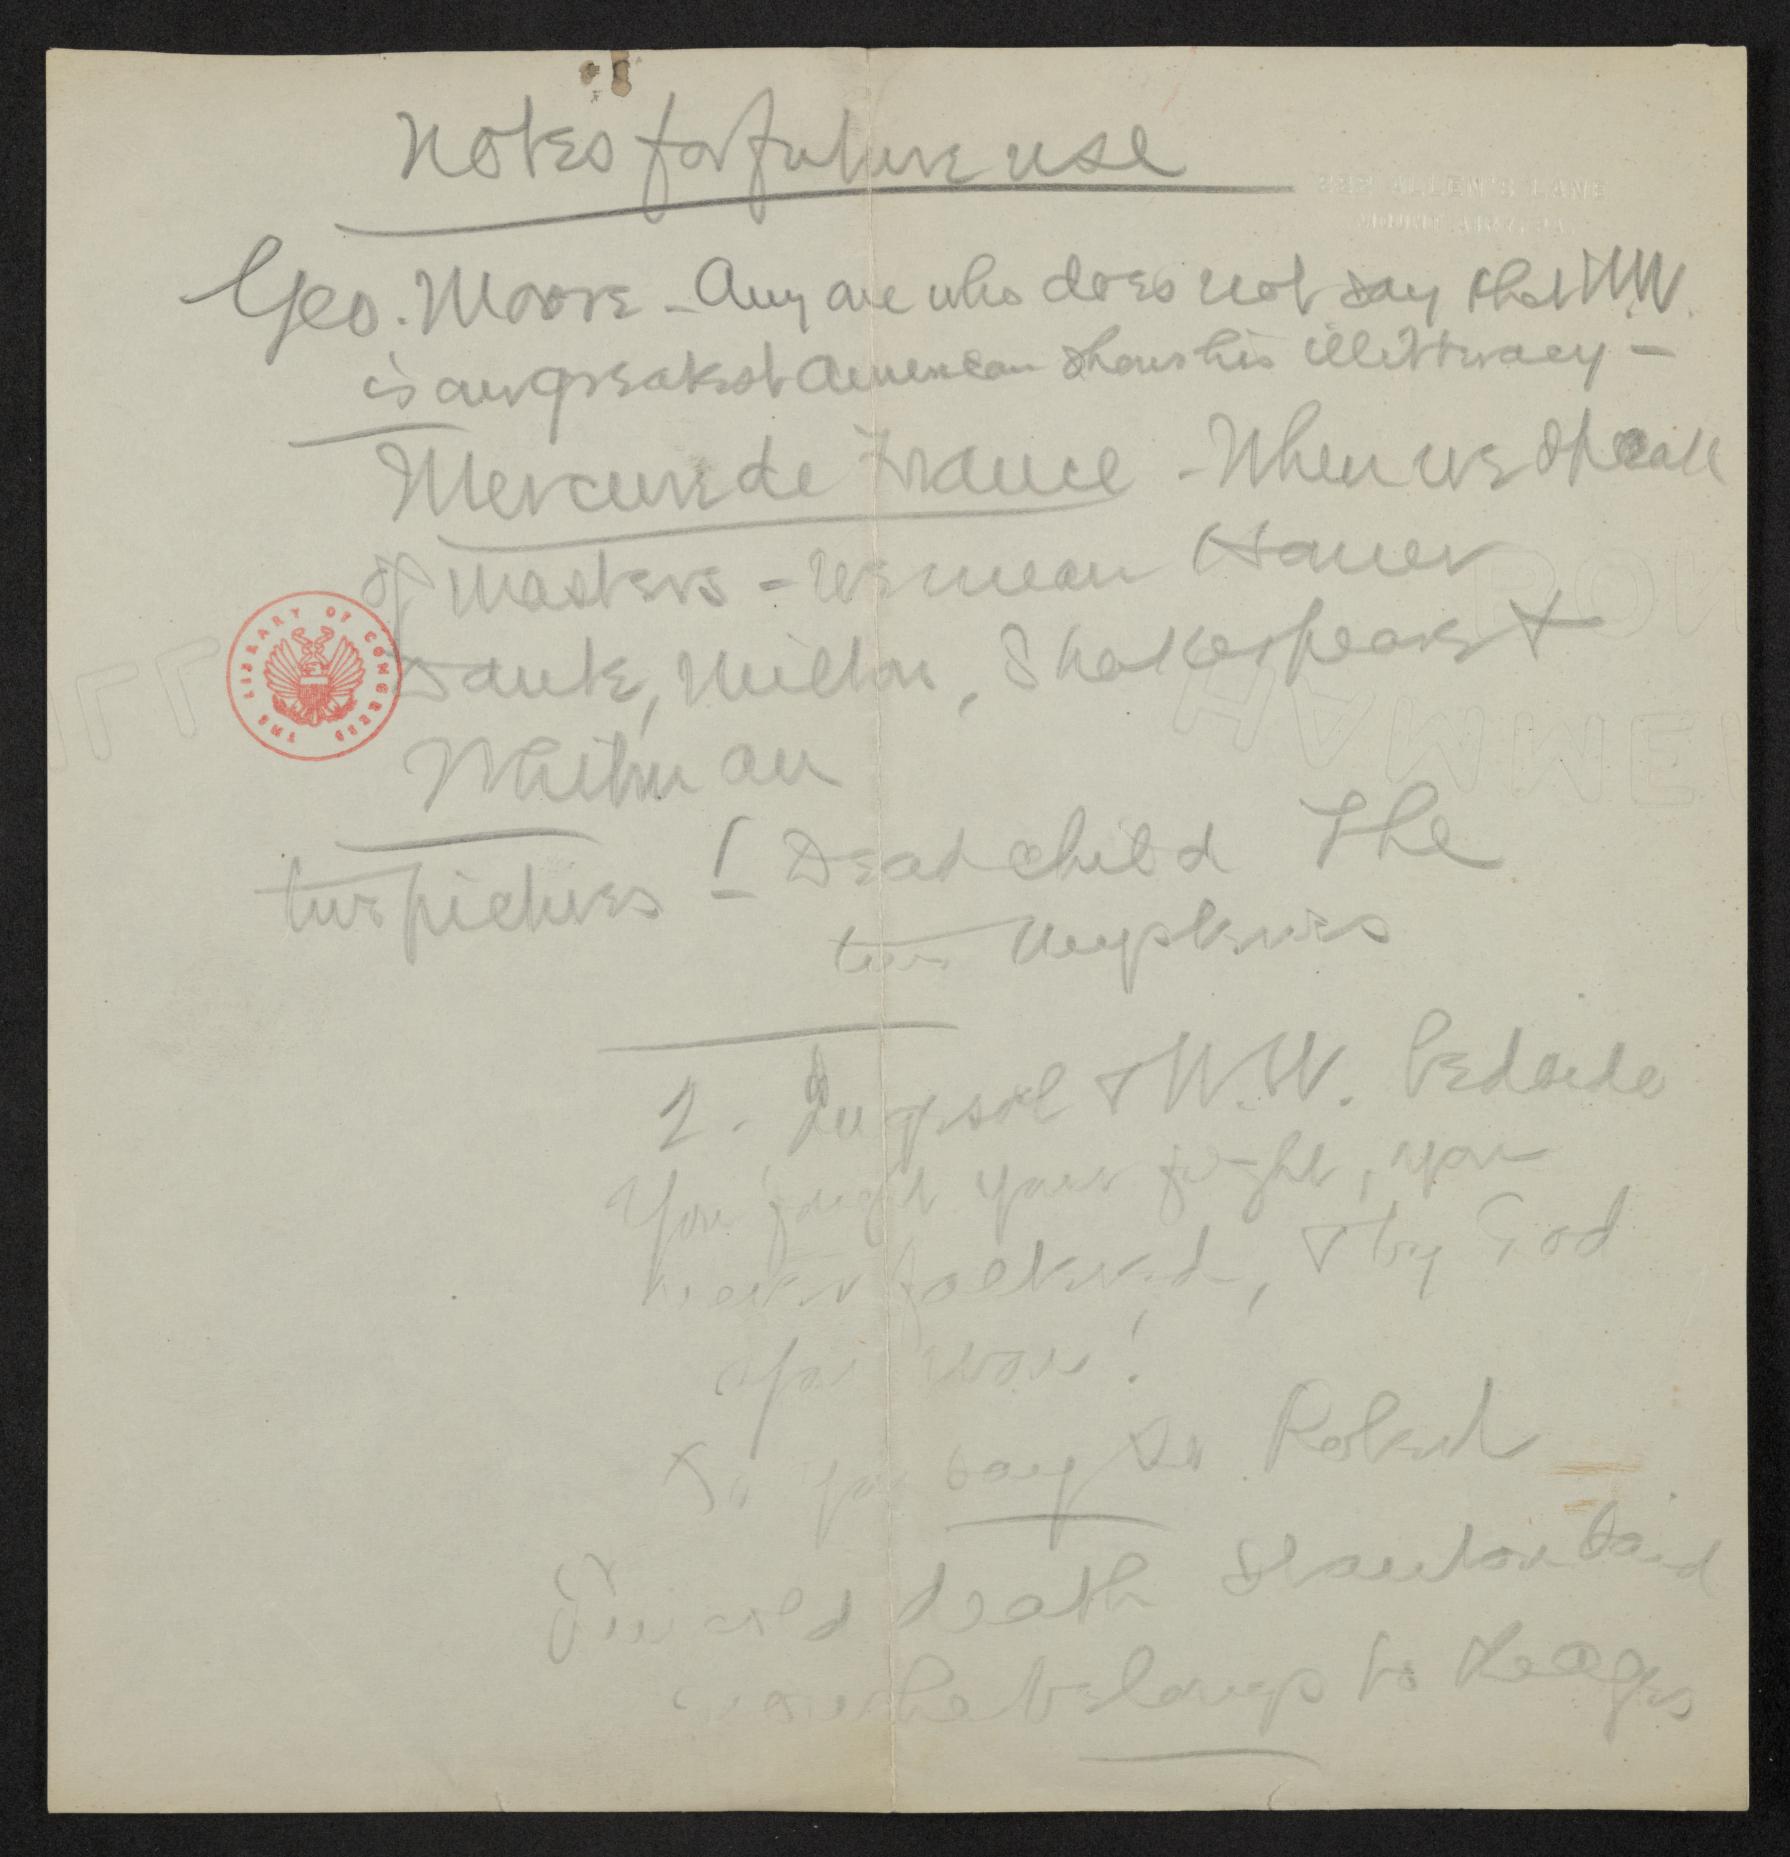 Notes for future use
222 ALLEN'S LANE
MOUNT AIRY, PA.
Geo. Moore - Any one who does not say that W.W.
is our greatest American shows his illiteracy -
Mercure de France - When we speak
of masters - we mean Homer
Dante, Milton, Shakespeare &
Whitman
THE LIBRARY OF CONGRESS
HAMMER
two pictures 1 Dead child The
two mysteries
2. Ingersol & W.W. bedside
You fought your fight, you
never faltered, & by God
you won!
Do you say so Robert
Lincoln's death Stanton said
now he belongs to the ages